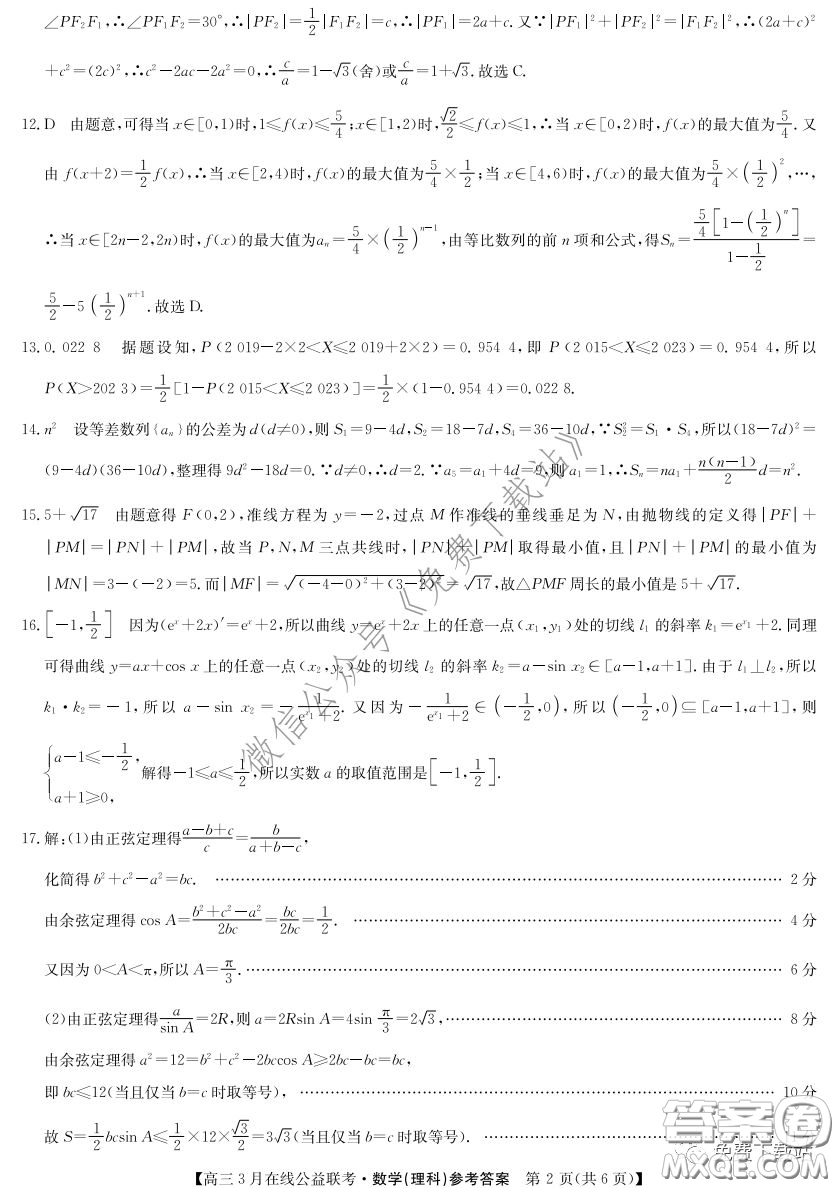 ∠PF₂F₁,∴∠PF₁F₂=30°,∴|PF₂|=1/2|F₁F₂|=c,∴|PF₁|=2a+c.又∵|PF₁|²+|PF₂|²=|F₁F₂|²,∴(2a+c)²
+c²=(2c)²,∴c²-2ac-2a²=0,∴c/a=1-√3(舍)或c/a=1+√3.故选C.
12.D 由题意,可得当x∈[0,1)时,1≤f(x)≤5/4;x∈[1,2)时,√2/2≤f(x)≤1,∴当x∈[0,2)时,f(x)的最大值为5/4.又
由f(x+2)=1/2f(x),∴当x∈[2,4)时,f(x)的最大值为5/4×1/2;当x∈[4,6)时,f(x)的最大值为5/4×(1/2)²,…,
∴当x∈[2n-2,2n)时,f(x)的最大值为aₙ=5/4×(1/2)ⁿ⁻¹,由等比数列的前n项和公式,得Sₙ=5/4[1-(1/2)ⁿ]/(1-1/2)=
5/2-5(1/2)ⁿ⁺¹.故选D.
13.0.022 8 据题设知,P(2 019-2×2<X≤2 019+2×2)=0.954 4,即P(2 015<X≤2 023)=0.954 4,所以
P(X>202 3)=1/2[1-P(2 015<X≤2 023)]=1/2×(1-0.954 4)=0.022 8.
14.n² 设等差数列{aₙ}的公差为d(d≠0),则S₁=9-4d,S₂=18-7d,S₄=36-10d,∵S₂²=S₁·S₄,所以(18-7d)²=
(9-4d)(36-10d),整理得9d²-18d=0.∵d≠0,∴d=2.∵a₅=a₁+4d=9,则a₁=1,∴Sₙ=na₁+n(n-1)/2d=n².
15.5+√17 由题意得F(0,2),准线方程为y=-2,过点M作准线的垂线垂足为N,由抛物线的定义得|PF|+
|PM|=|PN|+|PM|,故当P,N,M三点共线时,|PN|+|PM|取得最小值,且|PN|+|PM|的最小值为
|MN|=3-(-2)=5.而|MF|=√((-4-0)²+(3-2)²)=√17,故△PMF周长的最小值是5+√17.
16.[-1,1/2] 因为(eˣ+2x)′=eˣ+2,所以曲线y=eˣ+2x上的任意一点(x₁,y₁)处的切线l₁的斜率k₁=e^x₁+2.同理
可得曲线y=ax+cos x上的任意一点(x₂,y₂)处的切线l₂的斜率k₂=a-sin x₂∈[a-1,a+1].由于l₁⊥l₂,所以
k₁·k₂=-1,所以a-sin x₂=-1/(e^x₁+2).又因为-1/(e^x₁+2)∈(-1/2,0),所以(-1/2,0)⊆[a-1,a+1],则
{a-1≤-1/2, a+1≥0, 解得-1≤a≤1/2,所以实数a的取值范围是[-1,1/2].
17.解:(1)由正弦定理得(a-b+c)/c=b/(a+b-c),
化简得b²+c²-a²=bc. …… 2分
由余弦定理得cos A=(b²+c²-a²)/2bc=bc/2bc=1/2. …… 4分
又因为0<A<π,所以A=π/3. …… 6分
(2)由正弦定理得a/sin A=2R,则a=2Rsin A=4sin π/3=2√3, …… 8分
由余弦定理得a²=12=b²+c²-2bccos A≥2bc-bc=bc,
即bc≤12(当且仅当b=c时取等号), …… 10分
故S=1/2bcsin A≤1/2×12×√3/2=3√3(当且仅当b=c时取等号). ……
【高三3月在线公益联考·数学(理科)参考答案 第2页(共6页)】
微信公众号《免费下载站》
答案圈
免费下载站
MXQE.COM